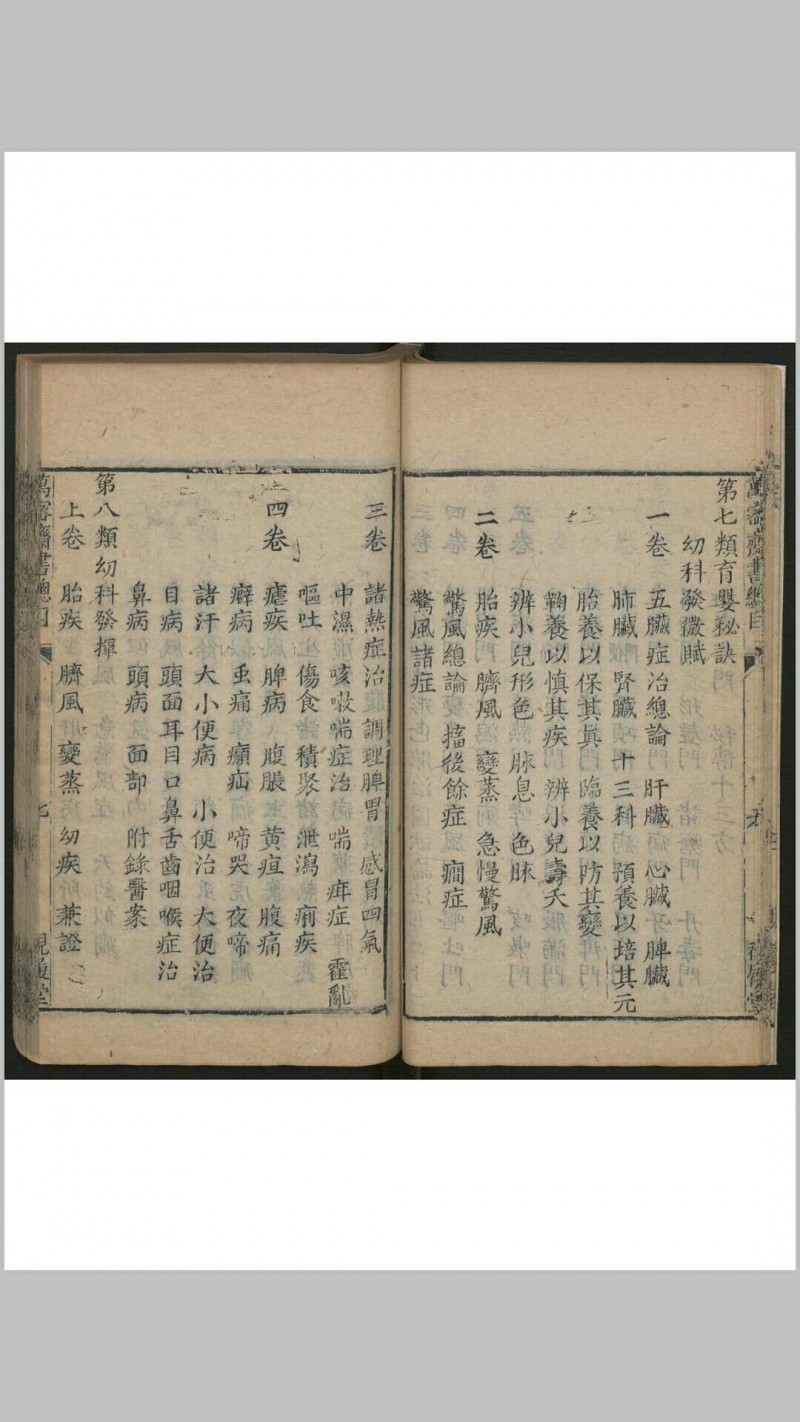 萬密齋書總目
第七類育嬰秘訣
幼科發微賦
一卷 五臟症治總論 肝臟 心臟 脾臟
肺臟 腎臟 十三科 預養以培其元
胎養以保其真 臨養以防其變
鞠養以慎其疾 辨小兒壽夭
辨小兒形色 脉息 色脉
二卷 胎疾 臍風 變蒸 急慢驚風
驚風總論 搐後餘症 癇症
驚風諸症
三卷 諸熱症治 調理脾胃 感冒四氣
中濕 咳嗽喘症治 喘 痺症 霍亂
嘔吐 傷食 積聚 泄瀉 痢疾
四卷 瘧疾 脾病 腹脹 黃疸 腹痛
癖病 虫痛 㿗疝 啼哭 夜啼
諸汗 大小便病 小便治 大便治
目病 頭面耳目口鼻舌齒咽喉症治
鼻病 頭病 面部 附錄醫案
第八類幼科發揮
上卷 胎疾 臍風 變蒸 幼疾 兼證
萬密齋書總目 七 視履堂